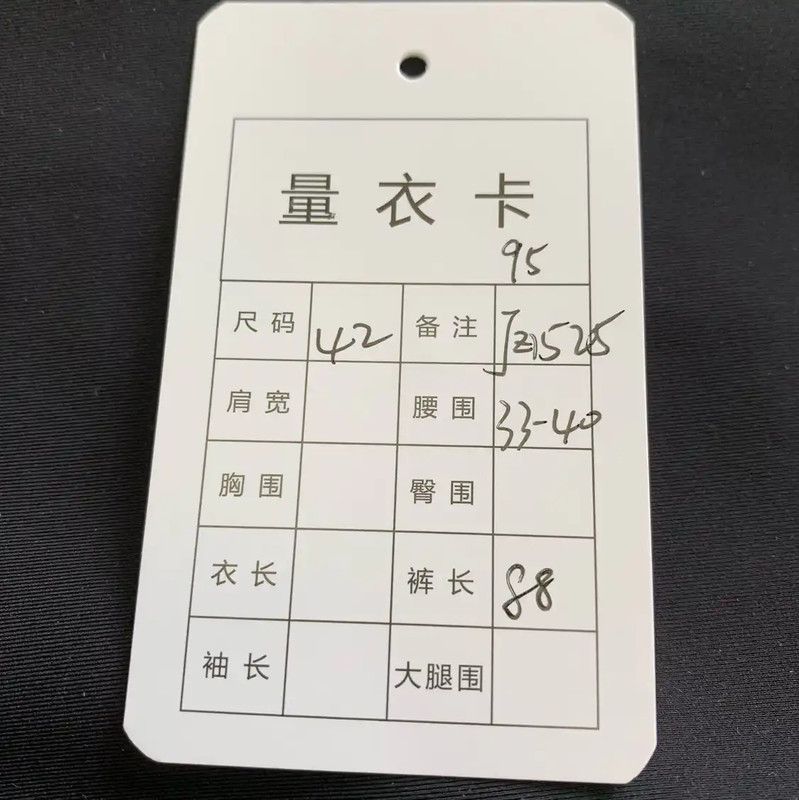 量衣卡
95
尺码 42 备注 JZ1525
肩宽 腰围 33-40
胸围 臀围
衣长 裤长 88
袖长 大腿围